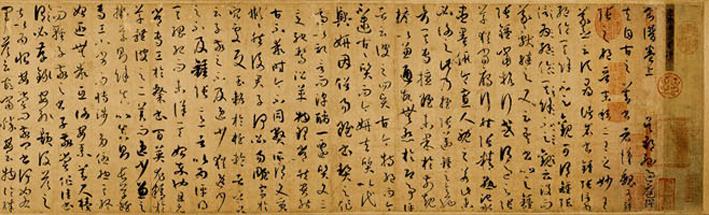 書譜卷上 吳郡孫過庭撰
夫自古之善書者漢魏有鍾
張之絕晉末稱二王之妙王
羲之云頃尋諸名書鍾張信
為絕倫其餘不足觀可謂鍾張云沒而
羲獻繼之又云吾書比之
鍾張鍾當抗行或謂過之張
草猶當鴈行然張精熟池水
盡墨假令寡人耽之若此
未必謝之此乃推張邁鍾之意
也考其專擅雖未果於前規
摭以兼通故無慚於即事評
者云彼之四賢古今特絕而今
不逮古古質而今妍夫質以代
興妍因俗易雖書契之作
適以記言而淳醨一遷質文
三變馳鶩沿革物理常然貴能
古不乖時今不同弊所謂文質
彬彬然後君子何必易雕宮於
穴處反玉輅於椎輪者乎又
云子敬之不及逸少猶逸少
之不及鍾張意者以為評得其綱
紀而未詳其始卒也且元
常專工於隸書百英尤精於
草體彼之二美而逸少兼之
擬草則餘真比真則長草
雖專工小劣而博涉多優揔其終
始匪無乖互謝安素善尺牘
而輕子敬之書子敬嘗作佳書
與之謂必存錄安輒題後答之
甚以為恨安嘗問敬卿書何如右
軍答云故當勝安云物論殊